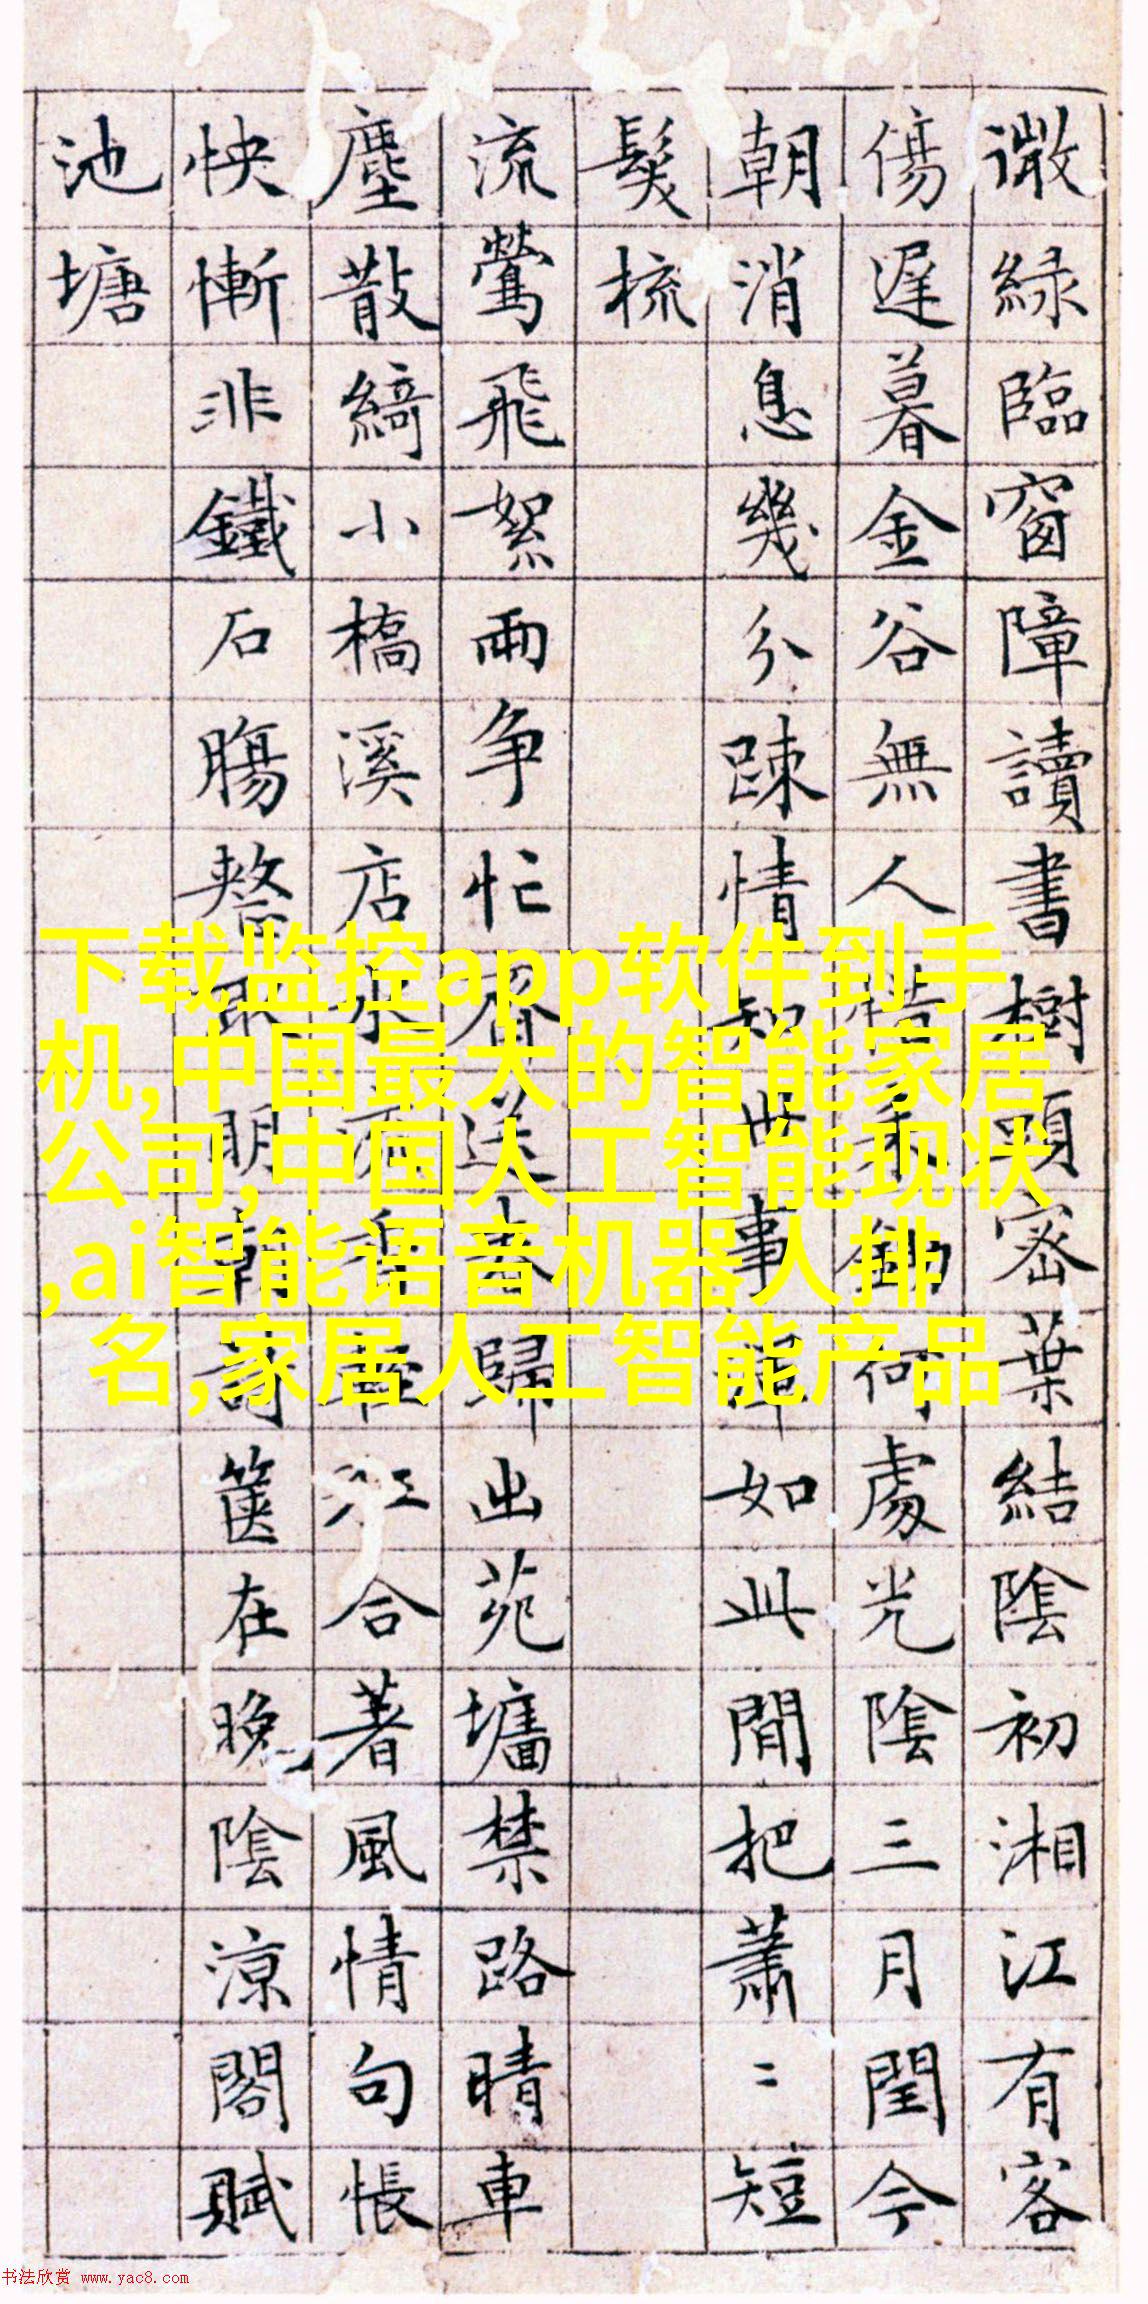 微綠臨窗障讀書樹頭密葉結陰初湘江有客
傷遲暮金谷無人 何處光陰三月閏今
朝消息幾分踈情知世事渾如此閒把蕭〻短
鬓梳
流鶯飛絮兩争忙 送春歸出苑墻禁路晴車
塵散綺小橋溪店水 江合著風情句悵
怏慚非鐵石腸 明朝 篋在晚陰涼閣賦
池塘
下载监控app软件到手
机,中国最大的智能家居
公司,中国人工智能现状
,ai智能语音机器人排
名,家居人工智能产品
书法欣赏 www.yac8.com